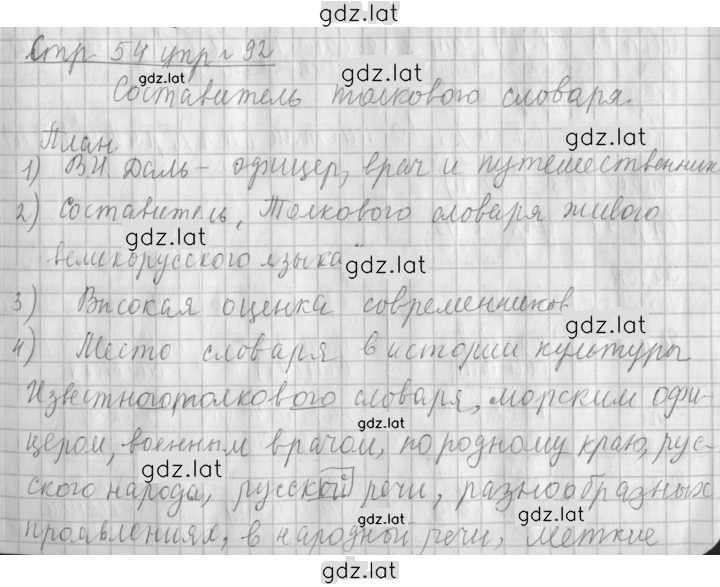 gdz.lat
Стр 54 упр 92
gdz.lat gdz.lat
Составитель толкового словаря.
План gdz.lat
1) В.И. Даль – офицер, врач и путешественник
gdz.lat
2) Составитель „Толкового словаря живого
gdz.lat
великорусского языка"
gdz.lat
3) Высокая оценка современников
gdz.lat
4) Место словаря в истории культуры
gdz.lat
Известного толкового словаря, морским офи-
gdz.lat
цером, военным врачом, по родному краю, рус-
gdz.lat
ского народа, русской речи, разнообразных
gdz.lat gdz.lat
проявлениях, в народной речи, меткие
gdz.lat